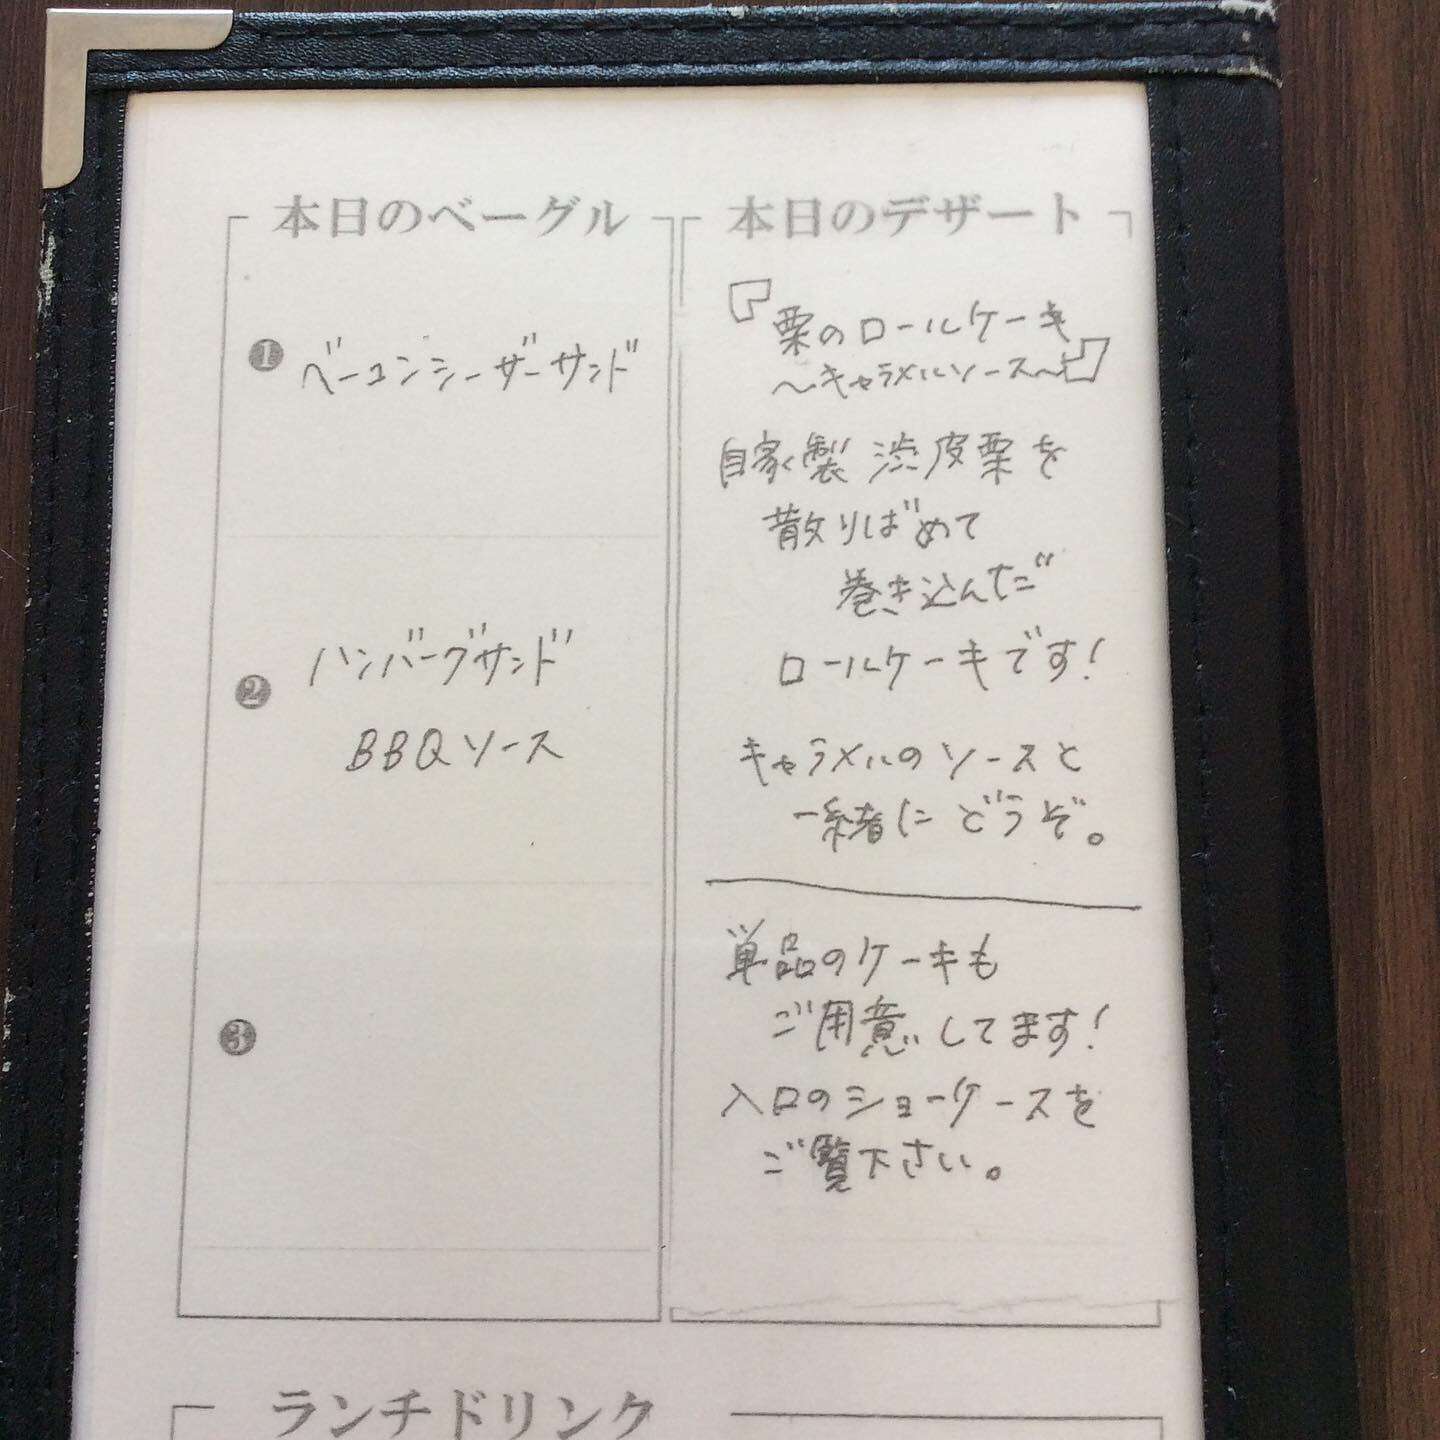 本日のベーグル
❶ ベーコンシーザーサンド
❷ ハンバーグサンド
BBQソース
❸
本日のデザート
『栗のロールケーキ
～キャラメルソース～』
自家製 渋皮栗を
散りばめて
巻き込んだ
ロールケーキです!
キャラメルのソースと
一緒に どうぞ。
単品のケーキも
ご用意してます!
入口のショーケースを
ご覧下さい。
ランチドリンク